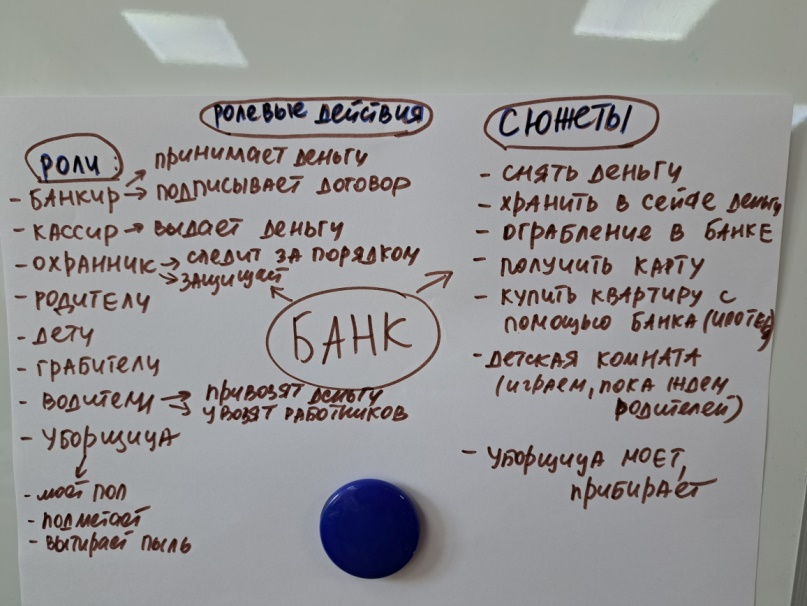 РОЛЕВЫЕ ДЕЙСТВИЯ
РОЛИ:
- БАНКИР → ПРИНИМАЕТ ДЕНЬГИ
→ ПОДПИСЫВАЕТ ДОГОВОР
- КАССИР → ВЫДАЕТ ДЕНЬГИ
- ОХРАННИК → СЛЕДИТ ЗА ПОРЯДКОМ
→ ЗАЩИЩАЕТ
- РОДИТЕЛИ
- ДЕТИ
- ГРАБИТЕЛИ
- ВОДИТЕЛИ → ПРИВОЗЯТ ДЕНЬГИ
УВОЗЯТ РАБОТНИКОВ
- УБОРЩИЦА
- МОЕТ ПОЛ
- ПОДМЕТАЕТ
- ВЫТИРАЕТ ПЫЛЬ
БАНК
СЮЖЕТЫ
- СНЯТЬ ДЕНЬГИ
- ХРАНИТЬ В СЕЙФЕ ДЕНЬГИ
- ОГРАБЛЕНИЕ В БАНКЕ
- ПОЛУЧИТЬ КАРТУ
- КУПИТЬ КВАРТИРУ С
ПОМОЩЬЮ БАНКА
- ДЕТСКАЯ КОМНАТА
(ИГРАЕМ, ПОКА ЖДЕМ
РОДИТЕЛЕЙ)
- УБОРЩИЦА МОЕТ,
ПРИБИРАЕТ